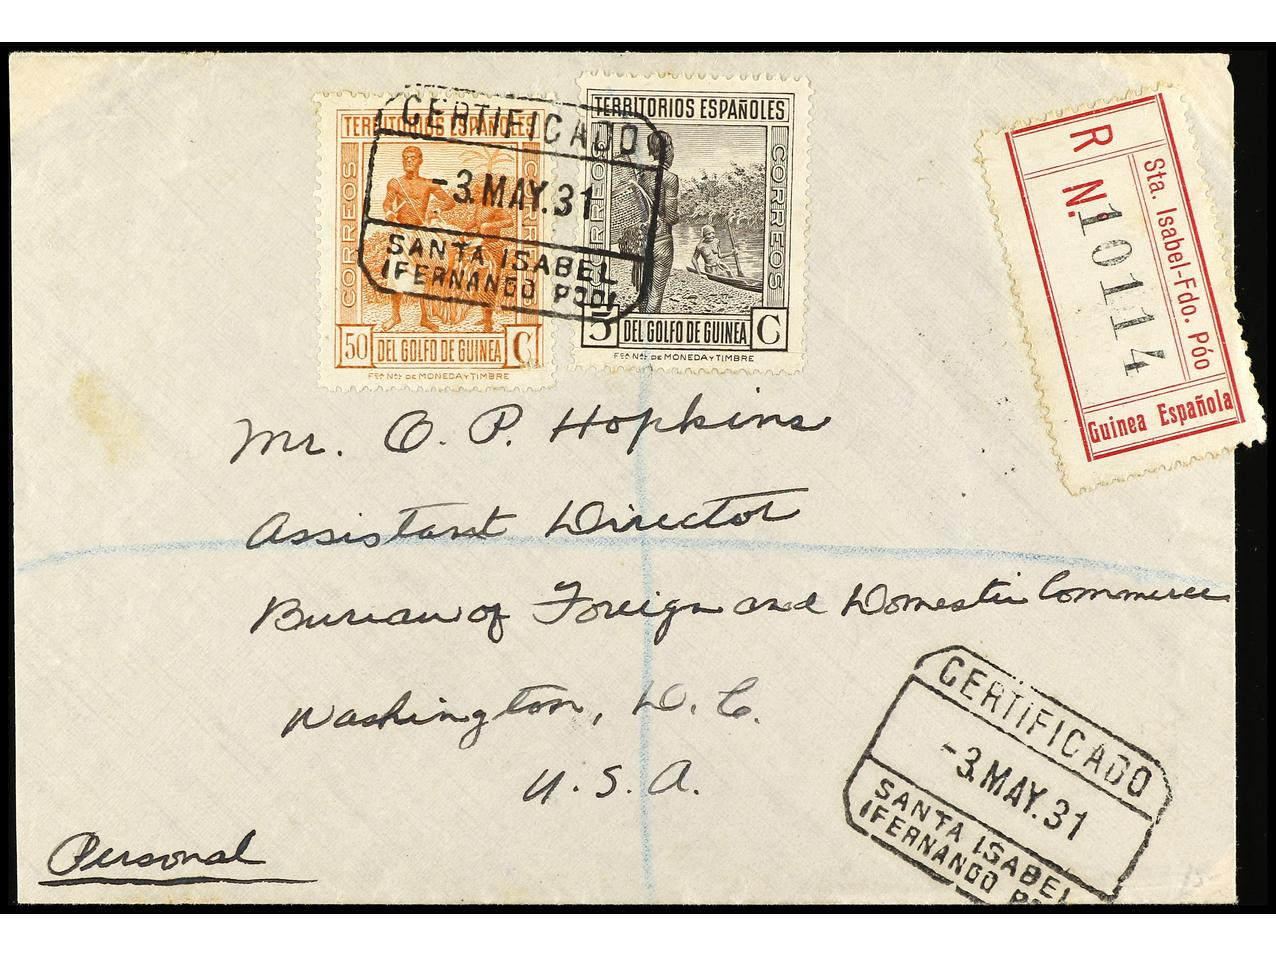 TERRITORIOS ESPAÑOLES
CORREOS
CORREOS
50
DEL GOLFO DE GUINEA
C
Fca Nal DE MONEDA Y TIMBRE
TERRITORIOS ESPAÑOLES
CORREOS
CORREOS
5
DEL GOLFO DE GUINEA
C
Fca Nal DE MONEDA Y TIMBRE
CERTIFICADO
-3.MAY.31
SANTA ISABEL
(FERNANDO POO)
R
Sta. Isabel-Fdo. Póo
N.º 10114
Guinea Española
Mr. O. P. Hopkins
Assistant Director
Bureau of Foreign and Domestic Commerce
Washington, D. C.
U. S. A.
Personal
CERTIFICADO
-3.MAY.31
SANTA ISABEL
(FERNANDO